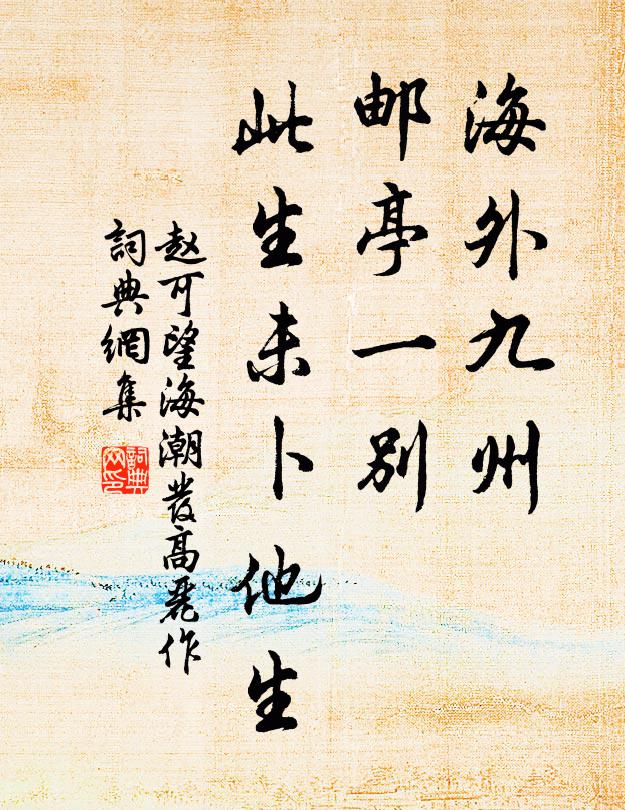 海外九州
邮亭一别
此生未卜他生
赵可望海潮發高麗作
詞典網集
詞典
网印